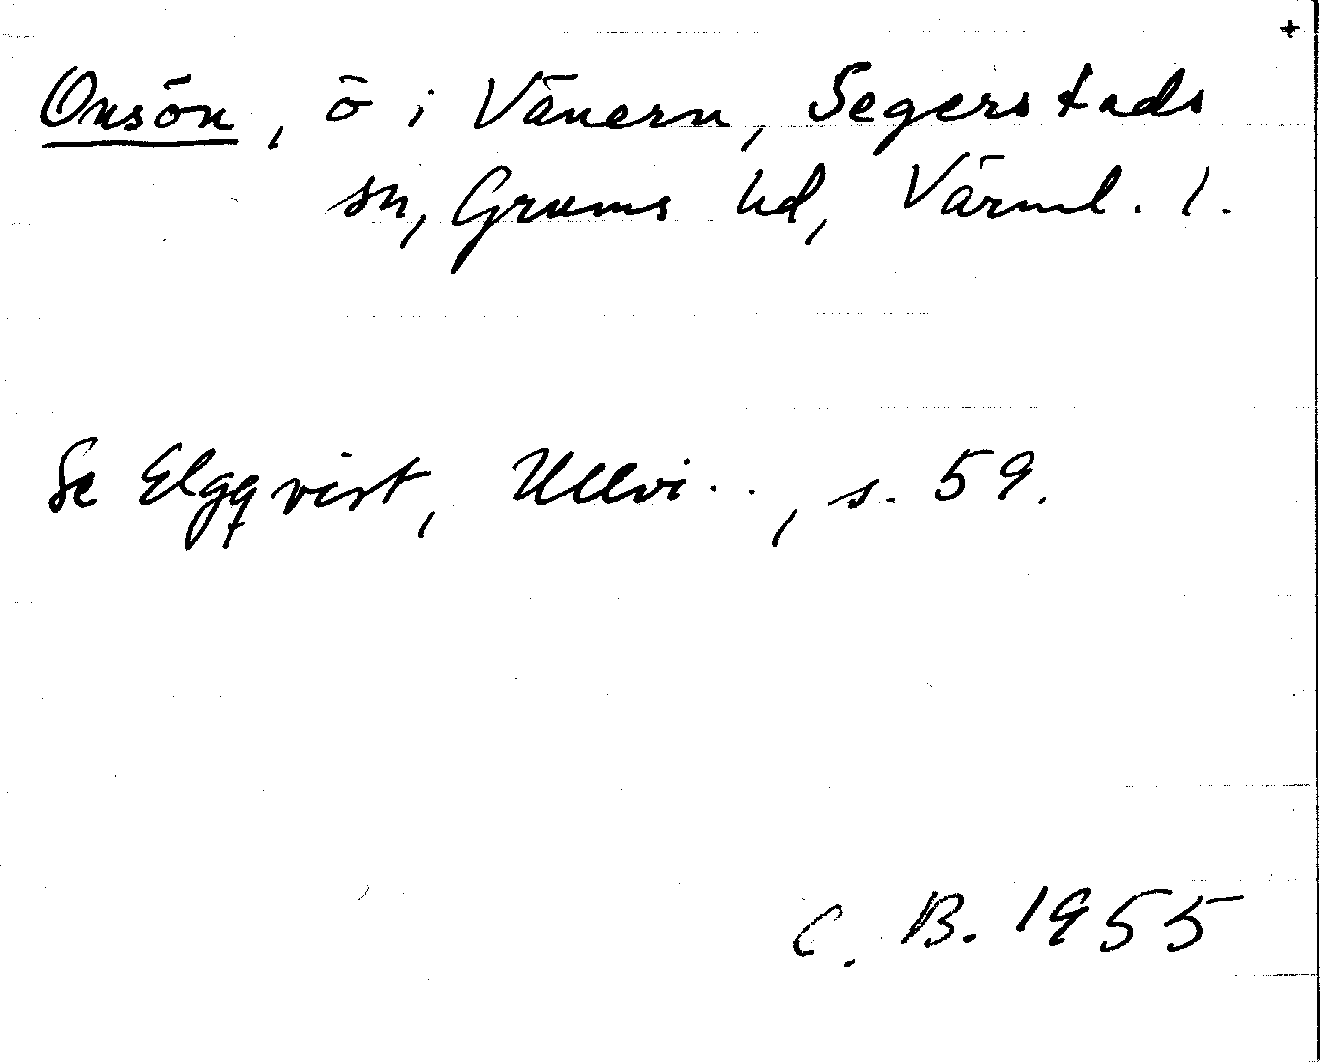 Onsön, ö i Vänern, Segerstads
sn, Grums hd, Värml. l.
Se Elgqvist, Ullvi.., s. 59.
C. B. 1955